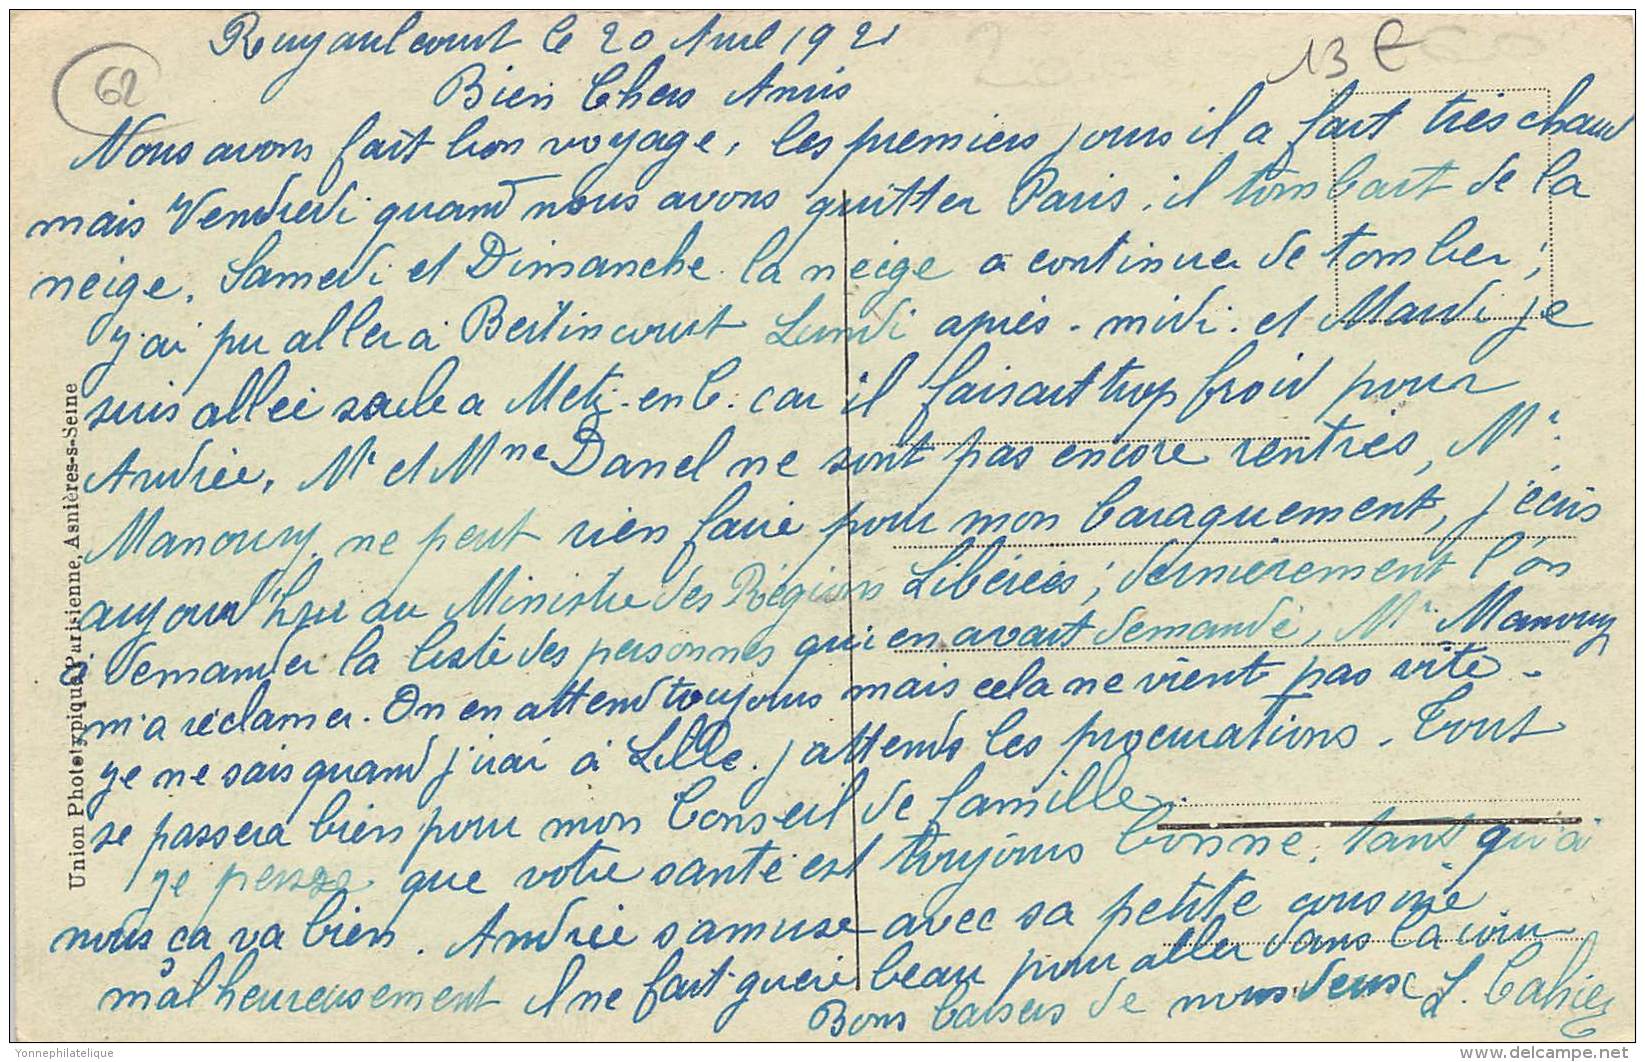 Ruyaulcourt le 20 Avril 1921
62
13 €
Bien Chers Amis
Nous avons fait bon voyage, les premiers jours il a fait très chaud
mais Vendredi quand nous avons quitter Paris, il tombait de la
neige, Samedi et Dimanche la neige a continuer de tomber ;
j'ai pu aller à Bertincourt Lundi après-midi et Mardi je
suis allée seule a Metz-en-C. car il faisait trop froid pour
Andrée, Mr et Mme Danel ne sont pas encore rentrés, Mr
Manoury ne peut rien faire pour mon baraquement, j'écris
aujourd'hui au Ministre des Régions Libérées ; dernièrement l'on
a demander la liste des personnes qui en avait demandé, Mr Manoury
m'a réclamer. On en attend toujours mais cela ne vient pas vite -
je ne sais quand j'irai à Lille. j'attends les procurations. Tout
se passera bien pour mon Conseil de famille
je pense que votre santé est toujours bonne, tant qu'à
nous ça va bien. Andrée s'amuse avec sa petite cousine
malheureusement il ne fait guère beau pour aller dans la cour
Bons baisers de nous deux L. Cahiez
Union Phototypique Parisienne, Asnières-s-Seine
Yonnephilatelique
delcampe.net